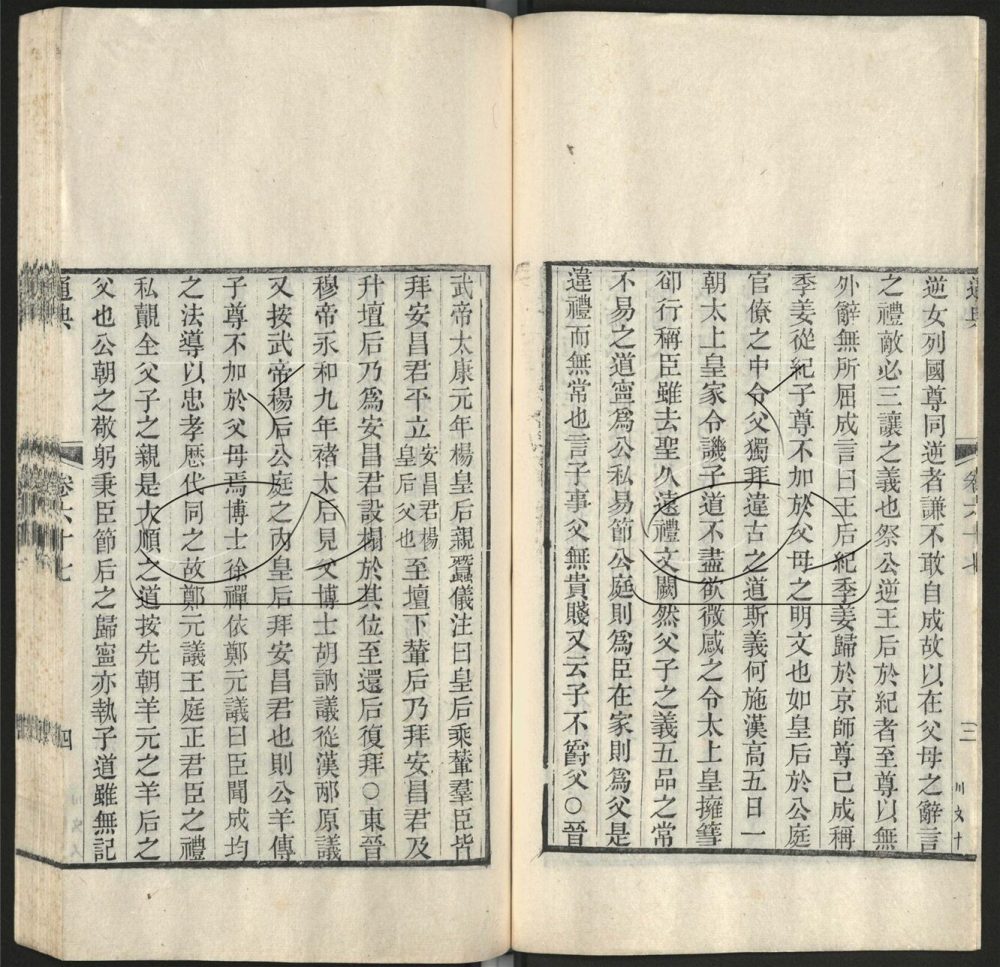 逆女列國尊同逆者謙不敢自成故以在父母之辭言
之禮敵必三讓之義也祭公逆王后於紀者至尊以無
外辭無所屈成言曰王后紀季姜歸於京師尊已成稱
季姜從紀子尊不加於父母之明文也如皇后於公庭
官僚之中令父獨拜違古之道斯義何施漢高五日一
朝太上皇家令譏子道不盡欲微感之令太上皇擁篲
卻行稱臣雖去聖久遠禮文闕然父子之義五品之常
不易之道寧為公私易節公庭則為臣在家則為父是
違禮而無常也言子事父無貴賤又云子不爵父○晉
通典
卷六十七
三
川文十
武帝太康元年楊皇后親蠶儀注曰皇后乘輦羣臣皆
拜安昌君平立安昌君楊皇后父也至壇下輦后乃拜安昌君及
升壇后乃為安昌君設榻於其位至還后復拜○東晉
穆帝永和九年褚太后見父博士胡訥議從漢邴原議
又按武帝楊后公庭之內皇后拜安昌君也則公羊傳
子尊不加於父母焉博士徐禪依鄭元議曰臣聞成均
之法導以忠孝歷代同之故鄭元議王庭正君臣之禮
私覿全父子之親是大順之道按先朝羊元之羊后之
父也公朝之敬躬秉臣節后之歸寧亦執子道雖無記
通典
卷六十七
四